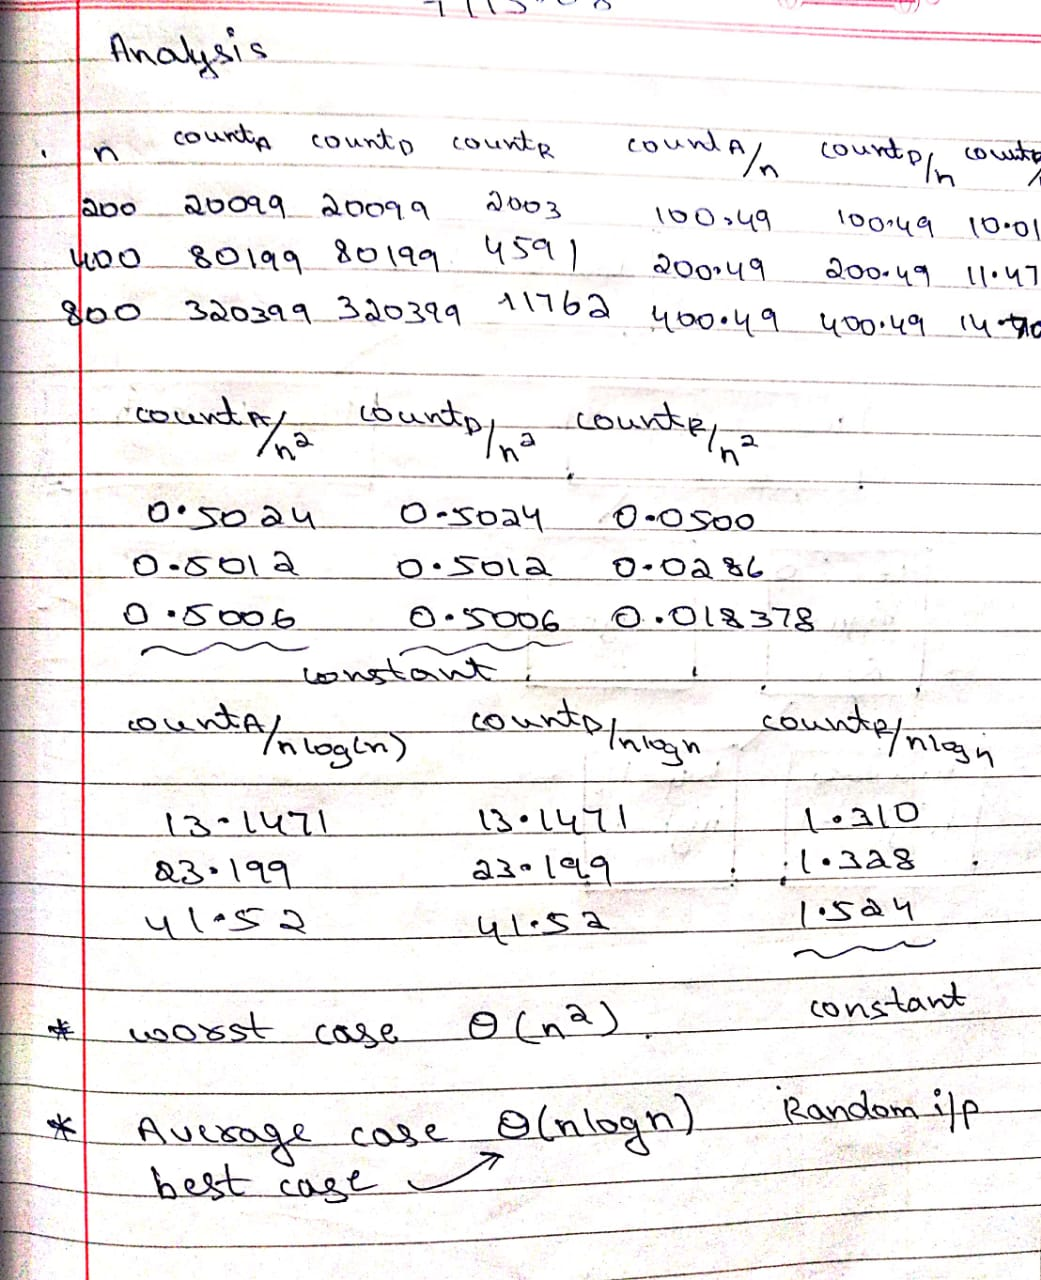 Analysis
n countA countD countR countA/n countD/n
200 20099 20099 2003 100.49 100.49 10.01
400 80199 80199 4591 200.49 200.49 11.47
800 320399 320399 11762 400.49 400.49
countA/n² countD/n² countR/n²
0.5024 0.5024 0.0500
0.5012 0.5012 0.0286
0.5006 0.5006 0.018378
constant
countA/nlog(n) countD/nlogn countR/nlogn
13.1471 13.1471 1.310
23.199 23.199 1.328
41.52 41.52 1.524
constant
* worst case Θ(n²).
* Average case Θ(nlogn) Random i/p
best case